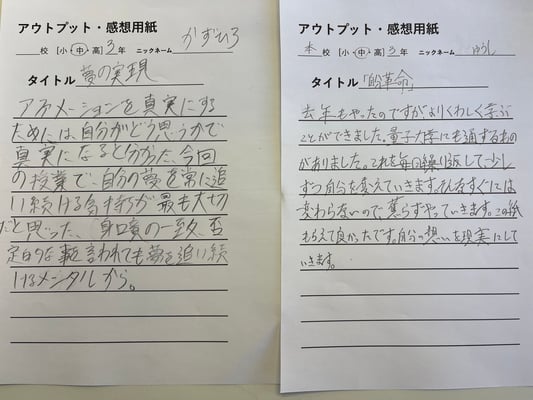 アウトプット・感想用紙
校 [小・中・高] 3年 ニックネーム かずひろ
タイトル 夢の実現
アファメーションを真実にする
ためには、自分がどう思うかで
真実になると分かった、今回
の授業で、自分の夢を常に追
い続ける気持ちが最も大切
だと思った、身口意の一致、否
定的な事を言われても夢を追い続
けるメンタルから。
アウトプット・感想用紙
本校 [小・中・高] 3年 ニックネーム ゆうし
タイトル 「脳革命」
去年もやったのですがよりくわしく学ぶ
ことができました。量子力学にも通ずるもの
がありました。これを毎日繰り返して、少し
ずつ自分を変えていきます。そんなすぐには
変わらないので、焦らずやっていきます。この紙
もらえて良かったです。自分の想いを現実にして
いきます。